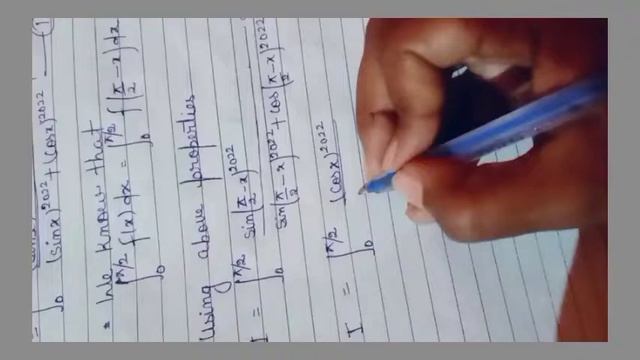 = ∫₀ (sinx)²⁰²² + (cosx)²⁰²² — (1
= We know that
∫₀^π/2 f(x) dx = ∫₀^π/2 f(π/2 - x) dx
Using above properties
I = ∫₀^π/2 sin(π/2 - x)²⁰²²
sin(π/2 - x)²⁰²² + cos(π/2 - x)²⁰²²
I = ∫₀^π/2 (cosx)²⁰²²